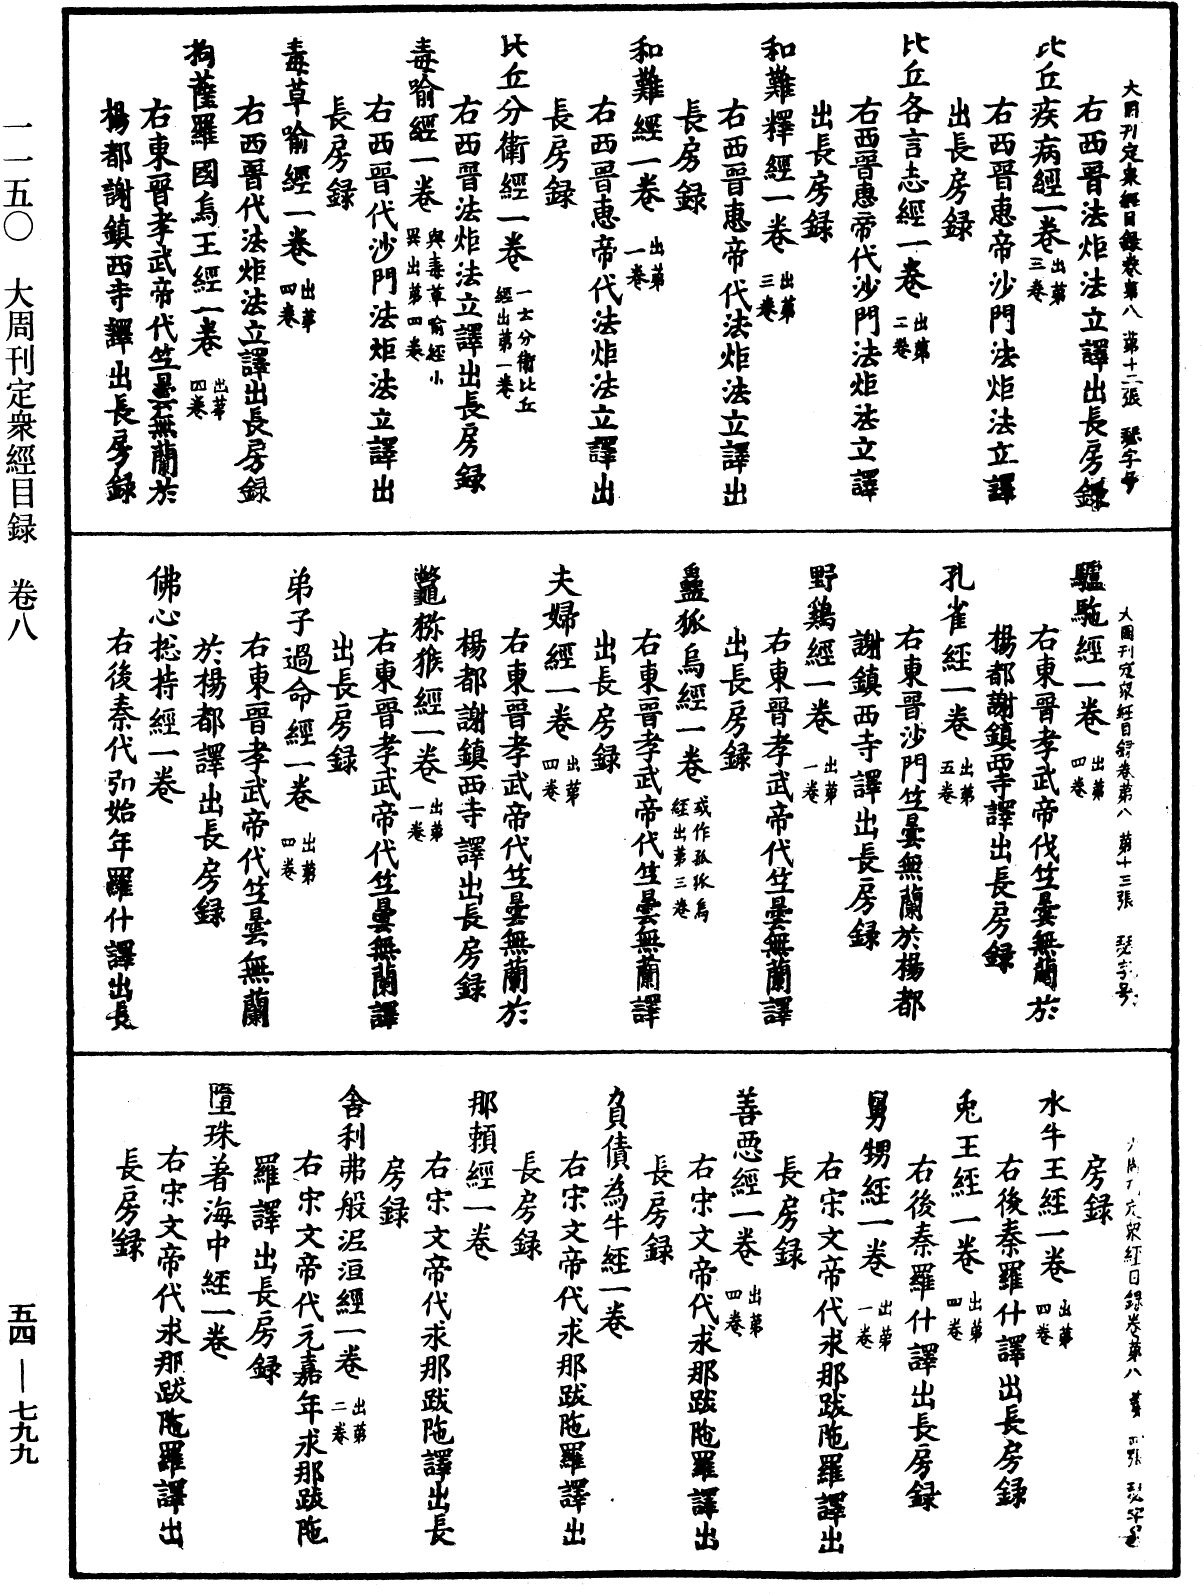 大周刊定衆經目録卷第八　第十二張　瑟字号
右西晉法炬法立譯出長房録
比丘疾病經一卷 出第三卷
右西晉惠帝沙門法炬法立譯
出長房録
比丘各言志經一卷 出第二卷
右西晉惠帝代沙門法炬法立譯
出長房録
和難釋經一卷 出第三卷
右西晉惠帝代法炬法立譯出
長房録
和難經一卷 出第一卷
右西晉惠帝代法炬法立譯出
長房録
比丘分衛經一卷 一云分衛比丘經出第一卷
右西晉法炬法立譯出長房録
毒喻經一卷 與毒草喻經小異出第四卷
右西晉代沙門法炬法立譯出
長房録
毒草喻經一卷 出第四卷
右西晉代法炬法立譯出長房録
拘薩羅國烏王經一卷 出第四卷
右東晉孝武帝代竺曇無蘭於
楊都謝鎮西寺譯出長房録
大周刊定衆經目録卷第八　第十三張　瑟字号
驢駞經一卷 出第四卷
右東晉孝武帝代竺曇無蘭於
楊都謝鎮西寺譯出長房録
孔雀經一卷 出第五卷
右東晉沙門竺曇無蘭於楊都
謝鎮西寺譯出長房録
野鷄經一卷 出第一卷
右東晉孝武帝代竺曇無蘭譯
出長房録
蠱狐烏經一卷 或作孤狐烏經出第三卷
右東晉孝武帝代竺曇無蘭譯
出長房録
夫婦經一卷 出第四卷
右東晉孝武帝代竺曇無蘭於
楊都謝鎮西寺譯出長房録
鼈獼猴經一卷 出第一卷
右東晉孝武帝代竺曇無蘭譯
出長房録
弟子過命經一卷 出第四卷
右東晉孝武帝代竺曇無蘭
於楊都譯出長房録
佛心惣持經一卷
右後秦代弘始年羅什譯出長
大周刊定衆經目録卷第八　第　四張　瑟字号
房録
水牛王經一卷 出第四卷
右後秦羅什譯出長房録
兎王經一卷 出第四卷
右後秦羅什譯出長房録
舅甥經一卷 出第一卷
右宋文帝代求那跋陁羅譯出
長房録
善惡經一卷 出第四卷
右宋文帝代求那跋陁羅譯出
長房録
負債為牛經一卷
右宋文帝代求那跋陁羅譯出
長房録
那頼經一卷
右宋文帝代求那跋陁譯出長
房録
舍利弗般泥洹經一卷 出第二卷
右宋文帝代元嘉年求那跋陁
羅譯出長房録
墮珠著海中經一卷
右宋文帝代求那跋陁羅譯出
長房録
一一五〇　大周刊定衆經目録　卷八
五四—七九九